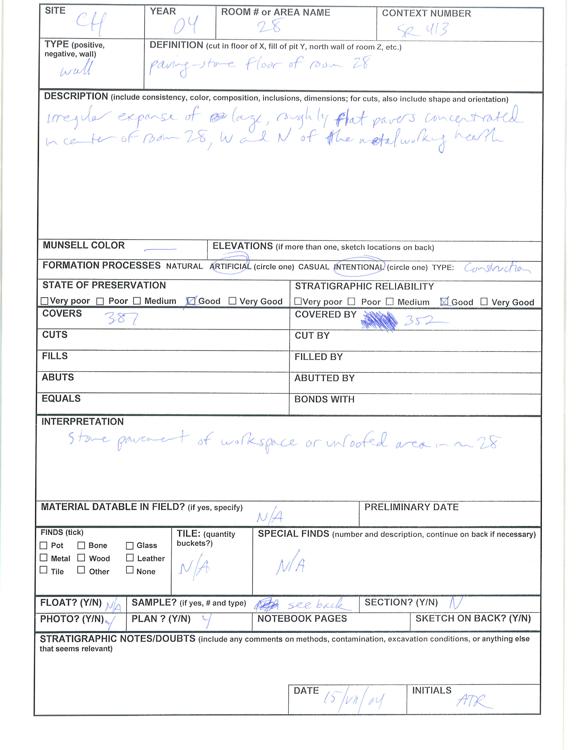 SITE CH YEAR 04 ROOM # OR AREA NAME 28 CONTEXT NUMBER SR 413
TYPE (positive, negative, wall) wall
DEFINITION (cut in floor of X, fill of pit Y, north wall of room Z, etc.)
paving-stone floor of room 28
DESCRIPTION (include consistency, color, composition, inclusions, dimensions; for cuts, also include shape and orientation)
irregular expanse of large, roughly flat pavers concentrated
in center of room 28, W and N of the metalworking hearth
MUNSELL COLOR — ELEVATIONS (if more than one, sketch locations on back)
FORMATION PROCESSES NATURAL ARTIFICIAL (circle one) CASUAL INTENTIONAL (circle one) TYPE: Construction
STATE OF PRESERVATION STRATIGRAPHIC RELIABILITY
Very poor Poor Medium Good Very Good Very poor Poor Medium Good Very Good
COVERS 387 COVERED BY 352
CUTS CUT BY
FILLS FILLED BY
ABUTS ABUTTED BY
EQUALS BONDS WITH
INTERPRETATION
Stone pavement of workspace or unroofed area in rm 28
MATERIAL DATABLE IN FIELD? (if yes, specify) N/A PRELIMINARY DATE
FINDS (tick)
Pot Bone Glass
Metal Wood Leather
Tile Other None
TILE: (quantity buckets?) N/A
SPECIAL FINDS (number and description, continue on back if necessary)
N/A
FLOAT? (Y/N) N/A SAMPLE? (if yes, # and type) see back SECTION? (Y/N) N
PHOTO? (Y/N) Y PLAN ? (Y/N) Y NOTEBOOK PAGES SKETCH ON BACK? (Y/N)
STRATIGRAPHIC NOTES/DOUBTS (include any comments on methods, contamination, excavation conditions, or anything else
that seems relevant)
DATE 15/VII/04 INITIALS ATR